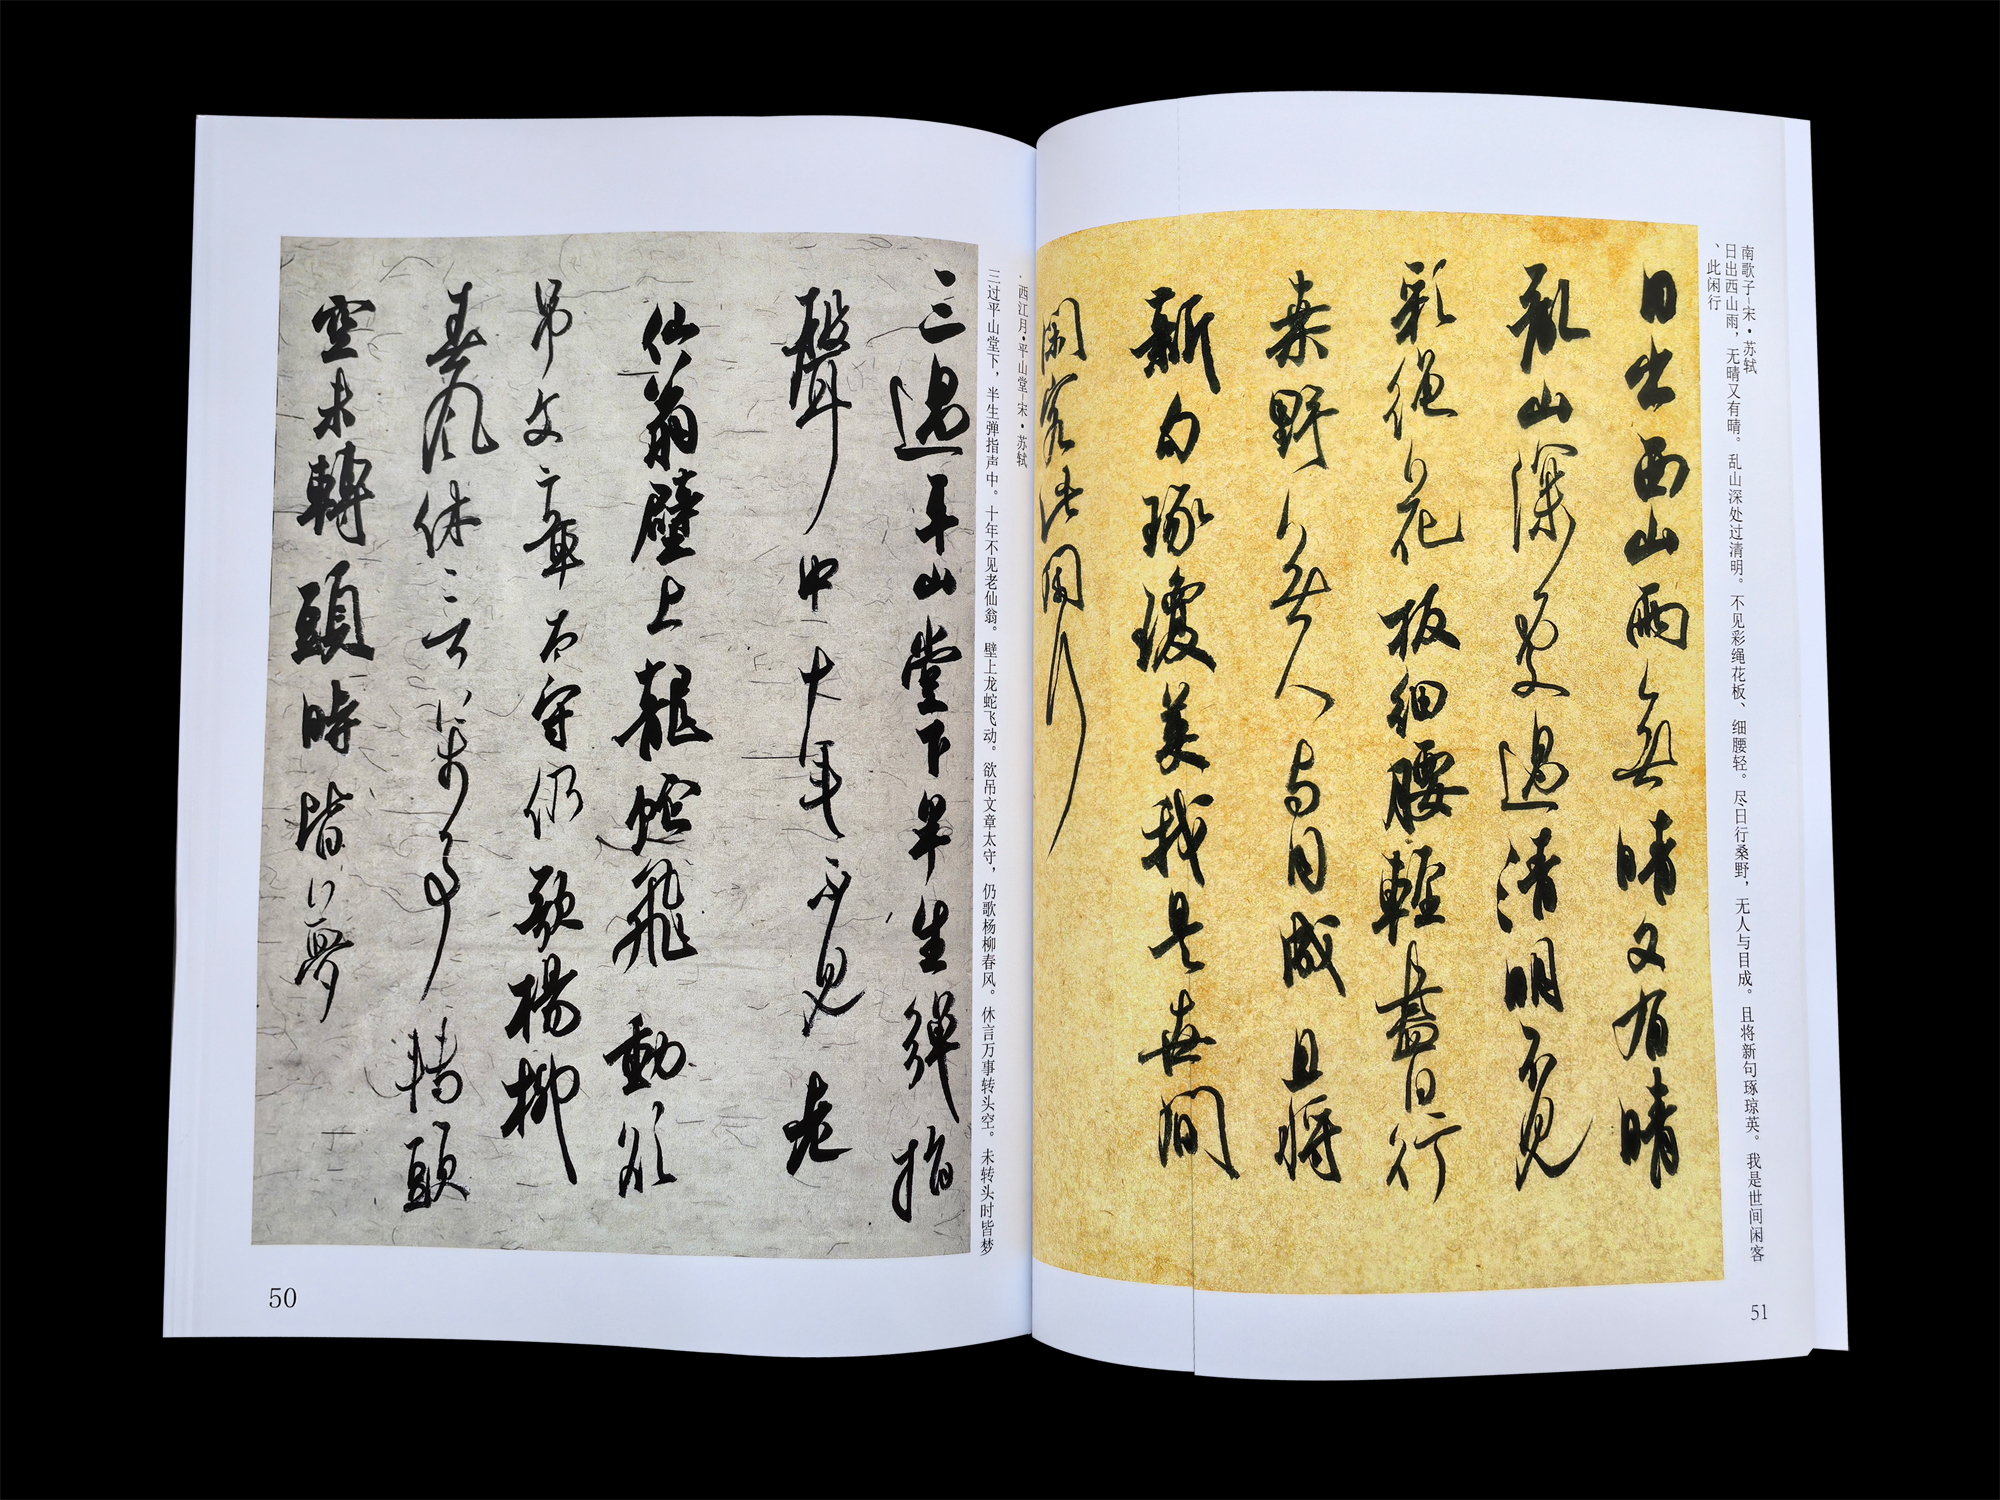 ·西江月·平山堂-宋·苏轼
三过平山堂下，半生弹指声中。十年不见老仙翁。壁上龙蛇飞动。欲吊文章太守，仍歌杨柳春风。休言万事转头空。未转头时皆梦
三過平山堂下半生彈指
聲中十年不見老
仙翁壁上龍蛇飛動欲
吊文章太守仍歌楊柳
春風休言萬事轉頭
空未轉頭時皆夢
50
南歌子-宋·苏轼
日出西山雨，无晴又有晴。乱山深处过清明。不见彩绳花板、细腰轻。尽日行桑野，无人与目成。且将新句琢琼英。我是世间闲客
、此闲行
日出西山雨無晴又有晴
亂山深處過清明不見
彩繩花板細腰輕盡日行
桑野無人与目成且將
新句琢瓊英我是世間
閑客此閑行
51